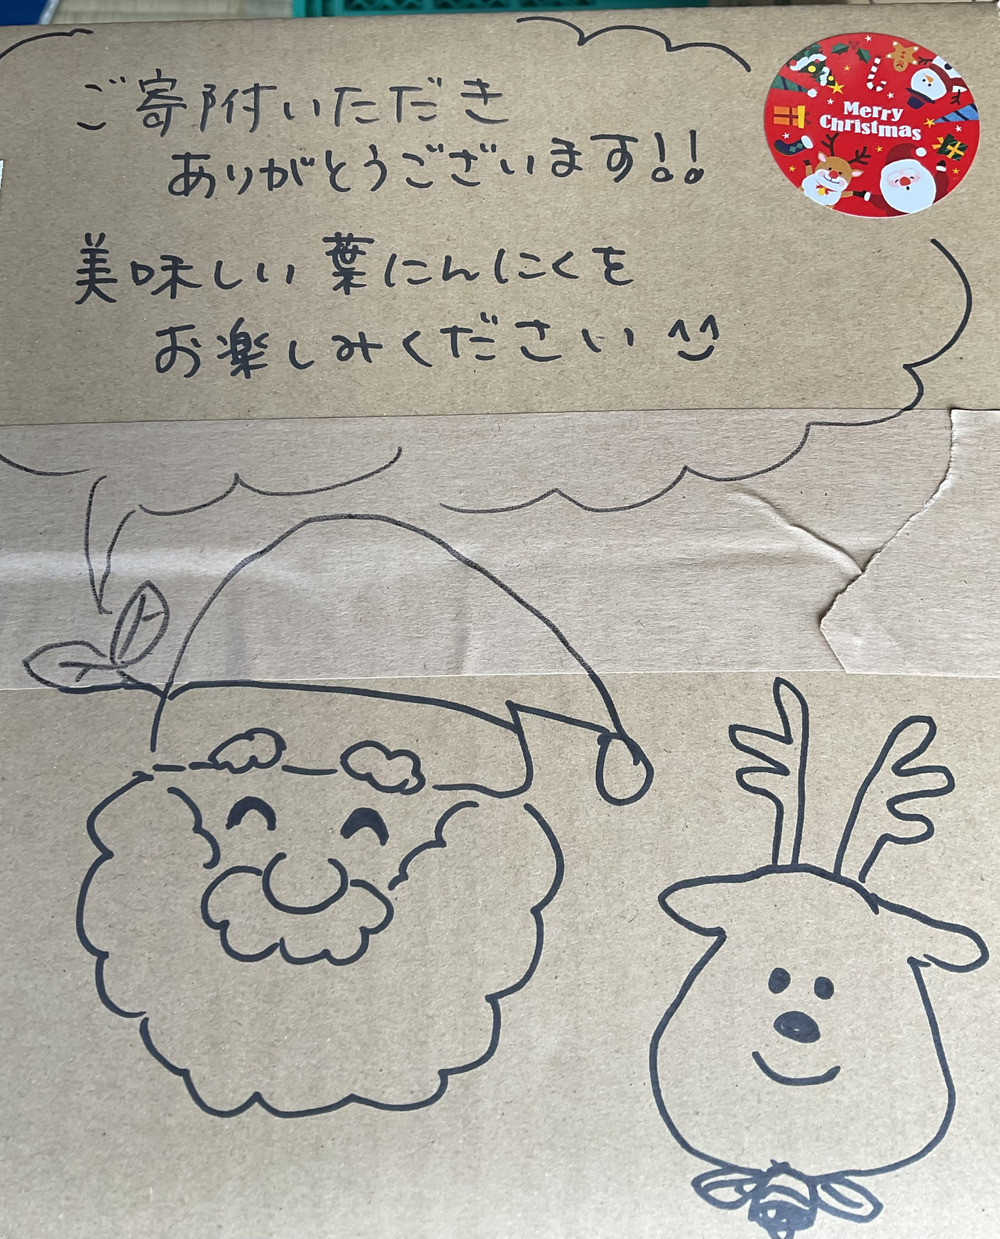 ご寄附いただき
ありがとうございます!!
美味しい葉にんにくを
お楽しみください ^^
Merry
Christmas